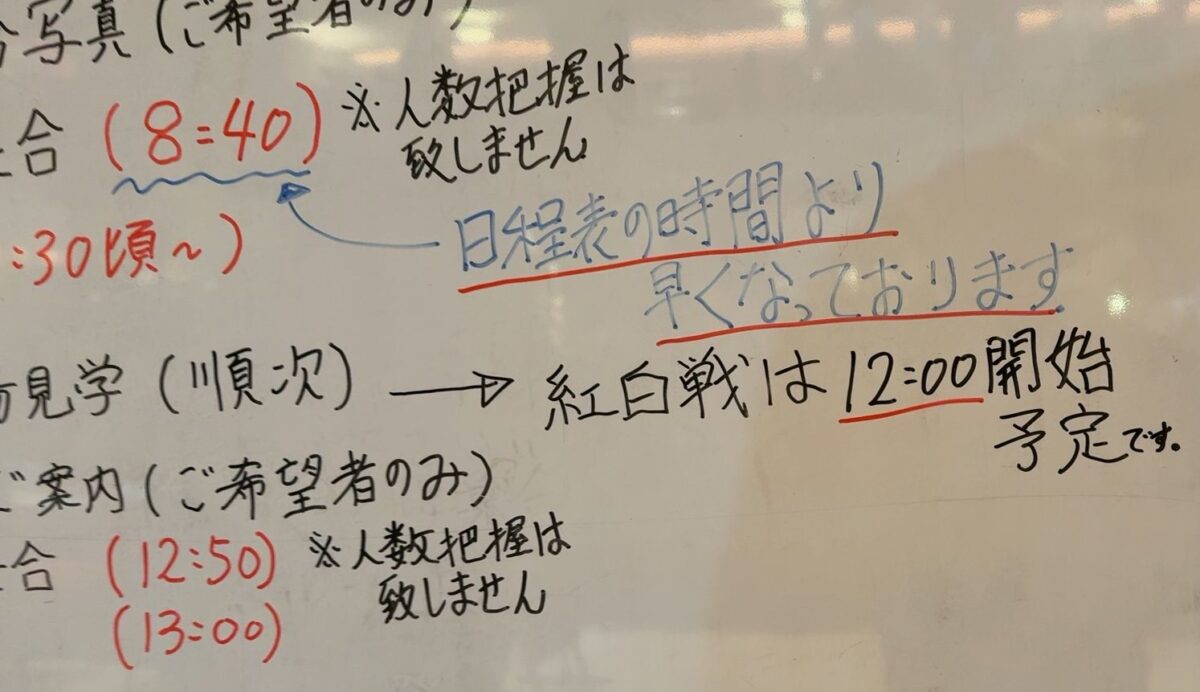 写真(ご希望者のみ)
合 (8:40) ※人数把握は
致しません
日程表の時間より
早くなっております
:30頃~)
見学(順次) → 紅白戦は12:00開始
予定です。
ご案内(ご希望者のみ)
合 (12:50) ※人数把握は
致しません
(13:00)